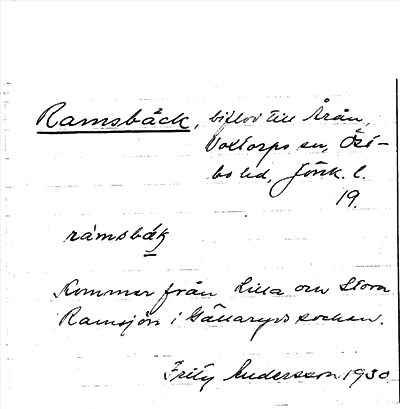 Ramsbäck, biflod till Årån,
Voxtorps sn, Öst-
bo hd, Jönk. l.
19.
ràmsbák
Kommer från Lilla och Stora
Ramsjön i Gällaryds socken.
Fritz Andersson 1930